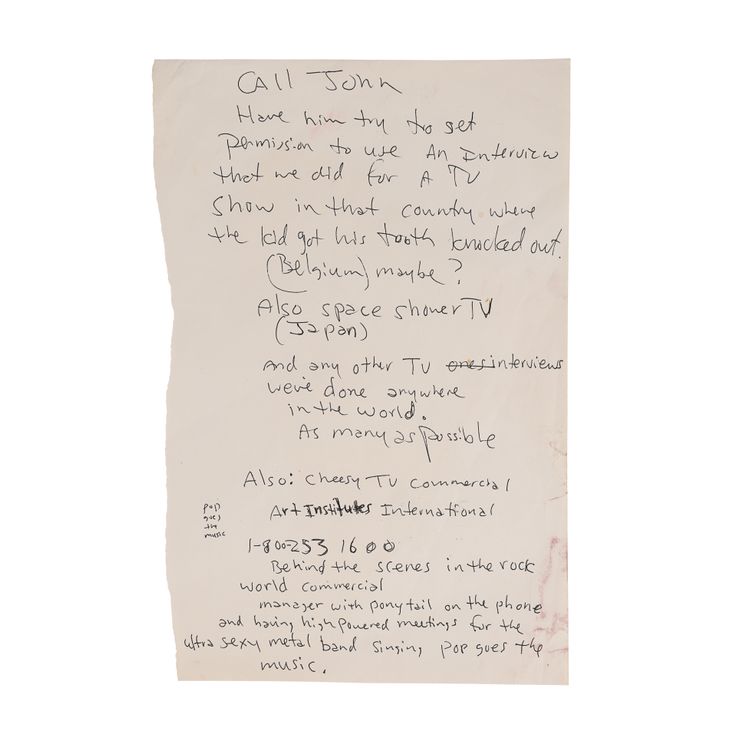 Call John
Have him try to get
permission to use An Interview
that we did for A TV
Show in that country where
the kid got his tooth knocked out.
(Belgium) maybe?
Also space shower TV
(Japan)
And any other TV ones interviews
we've done anywhere
in the world.
As many as possible
Also: Cheesy TV Commercial
Art Institutes International
pop
goes
the
music
1-800-253 1600
Behind the scenes in the rock
world commercial
manager with ponytail on the phone
and having high powered meetings for the
ultra sexy metal band singing pop goes the
music.